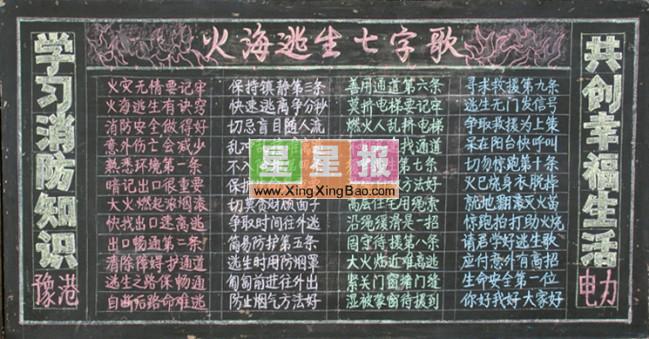 火海逃生七字歌
学习消防知识
豫港
火灾无情要记牢
火海逃生有诀窍
消防安全做得好
意外伤亡会减少
熟悉环境第一条
暗记出口很重要
大火燃起浓烟滚
快找出口速离逃
出口畅通第二条
清除障碍护通道
逃生之路保畅通
自断后路命难逃
保持镇静第三条
快速逃离争分秒
切忌盲目随人流
乱冲
不入
保护
切莫贪财顾面子
争取时间往外逃
简易防护第五条
逃生时用防烟罩
匍匐前进往外出
防止烟气方法好
善用通道第六条
莫挤电梯要记牢
燃火人乱挤电梯
找通道
第七条
方法好
高层住宅用绳索
沿绳缓滑是一招
固守待援第八条
大火临近难离逃
紧关门窗堵门缝
湿被蒙窗待援到
寻求救援第九条
逃生无门发信号
争取救援为上策
呆在阳台快呼叫
切勿惊跑第十条
火已烧身衣脱掉
就地翻滚灭火苗
惊跑拍打助火烧
请君学好逃生歌
应付意外有高招
生命安全第一位
你好我好大家好
共创幸福生活
电力
星星报
www.XingXingBao.com